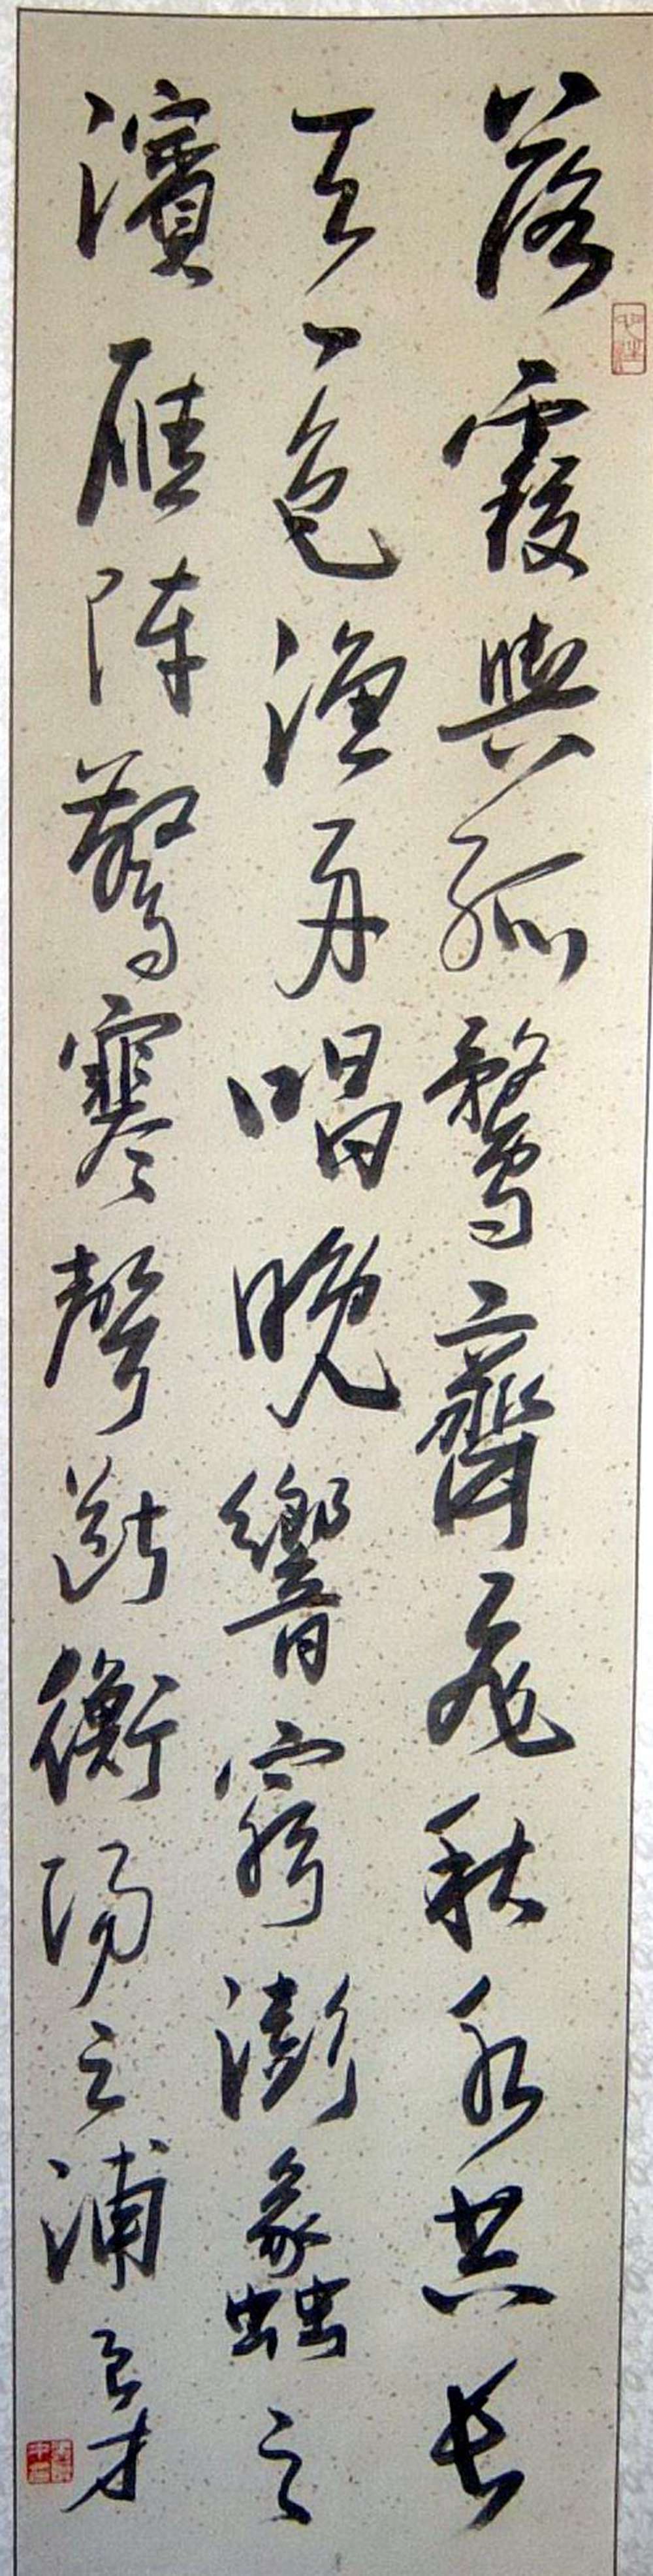 落霞與孤鶩齊飛秋水共長
天一色漁舟唱晚響窮澎蠡之
濱雁陣驚寒聲斷衡陽之浦